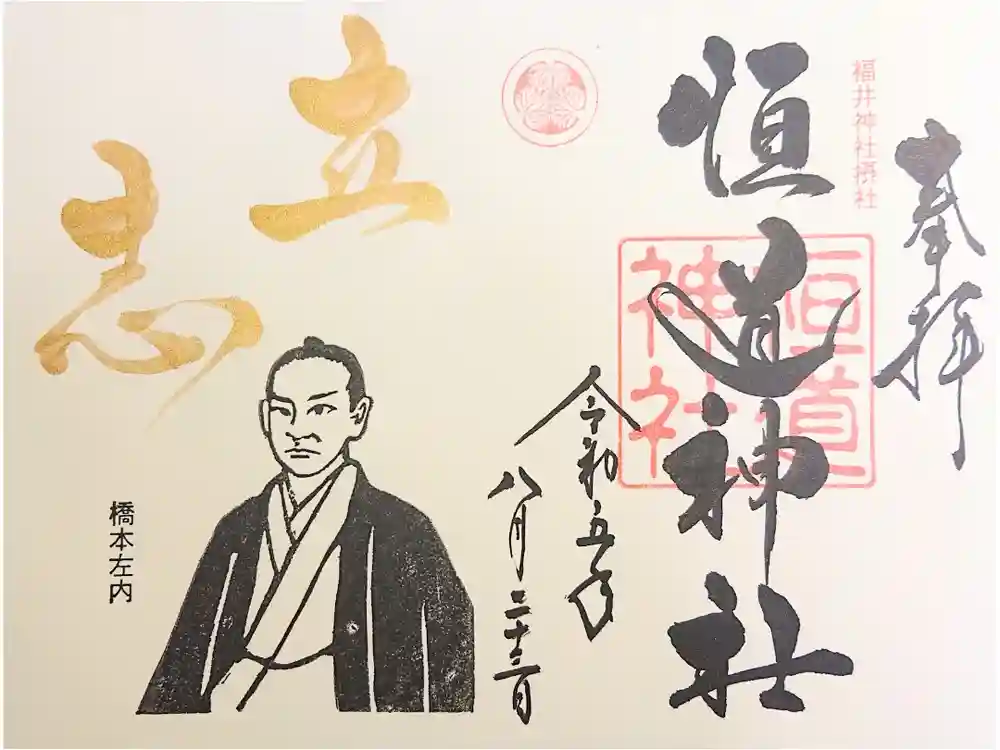 奉拝
福井神社摂社
恒道神社
恒道
神社
令和五年
八月二十三日
立
志
橋本左内